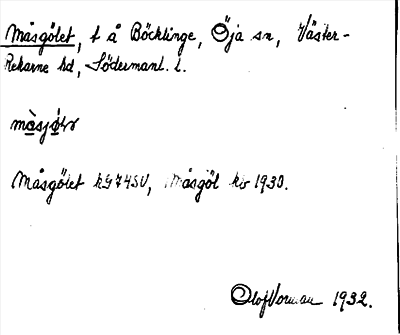 Måsgölet, t å Böcklinge, Öja sn, Väster-
Rekarne hd, Södermanl. l.
Måsgölet kG74SV, Måsgöl kb 1930.
Olof Vorman 1932.